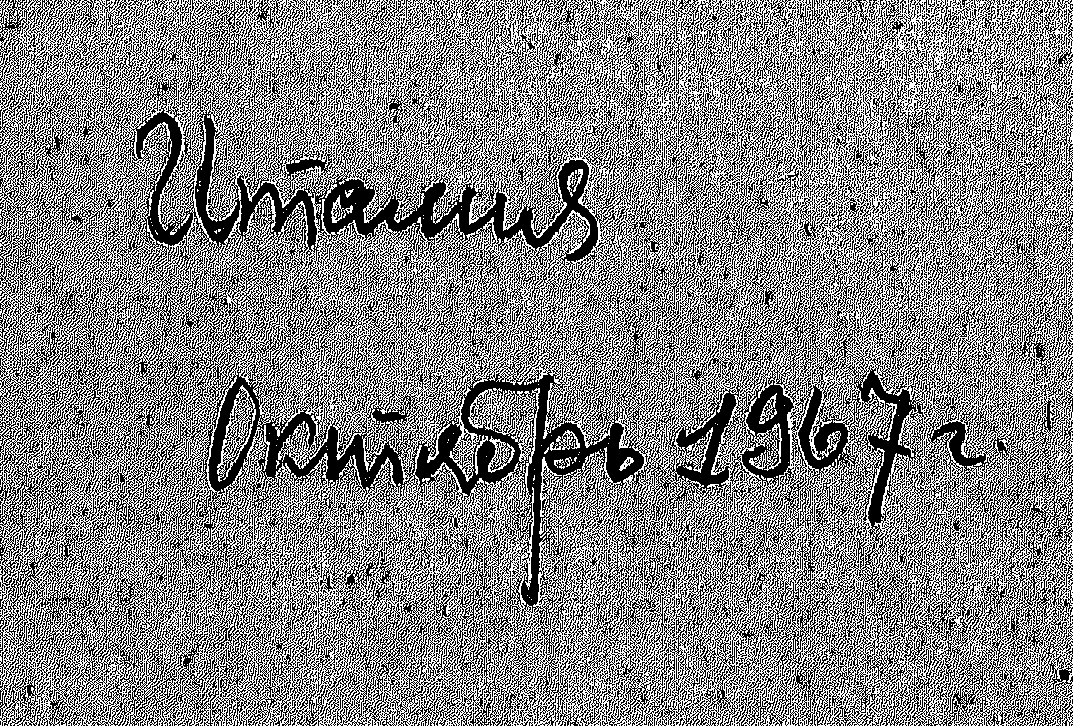 Италия
Октябрь 1967 г.